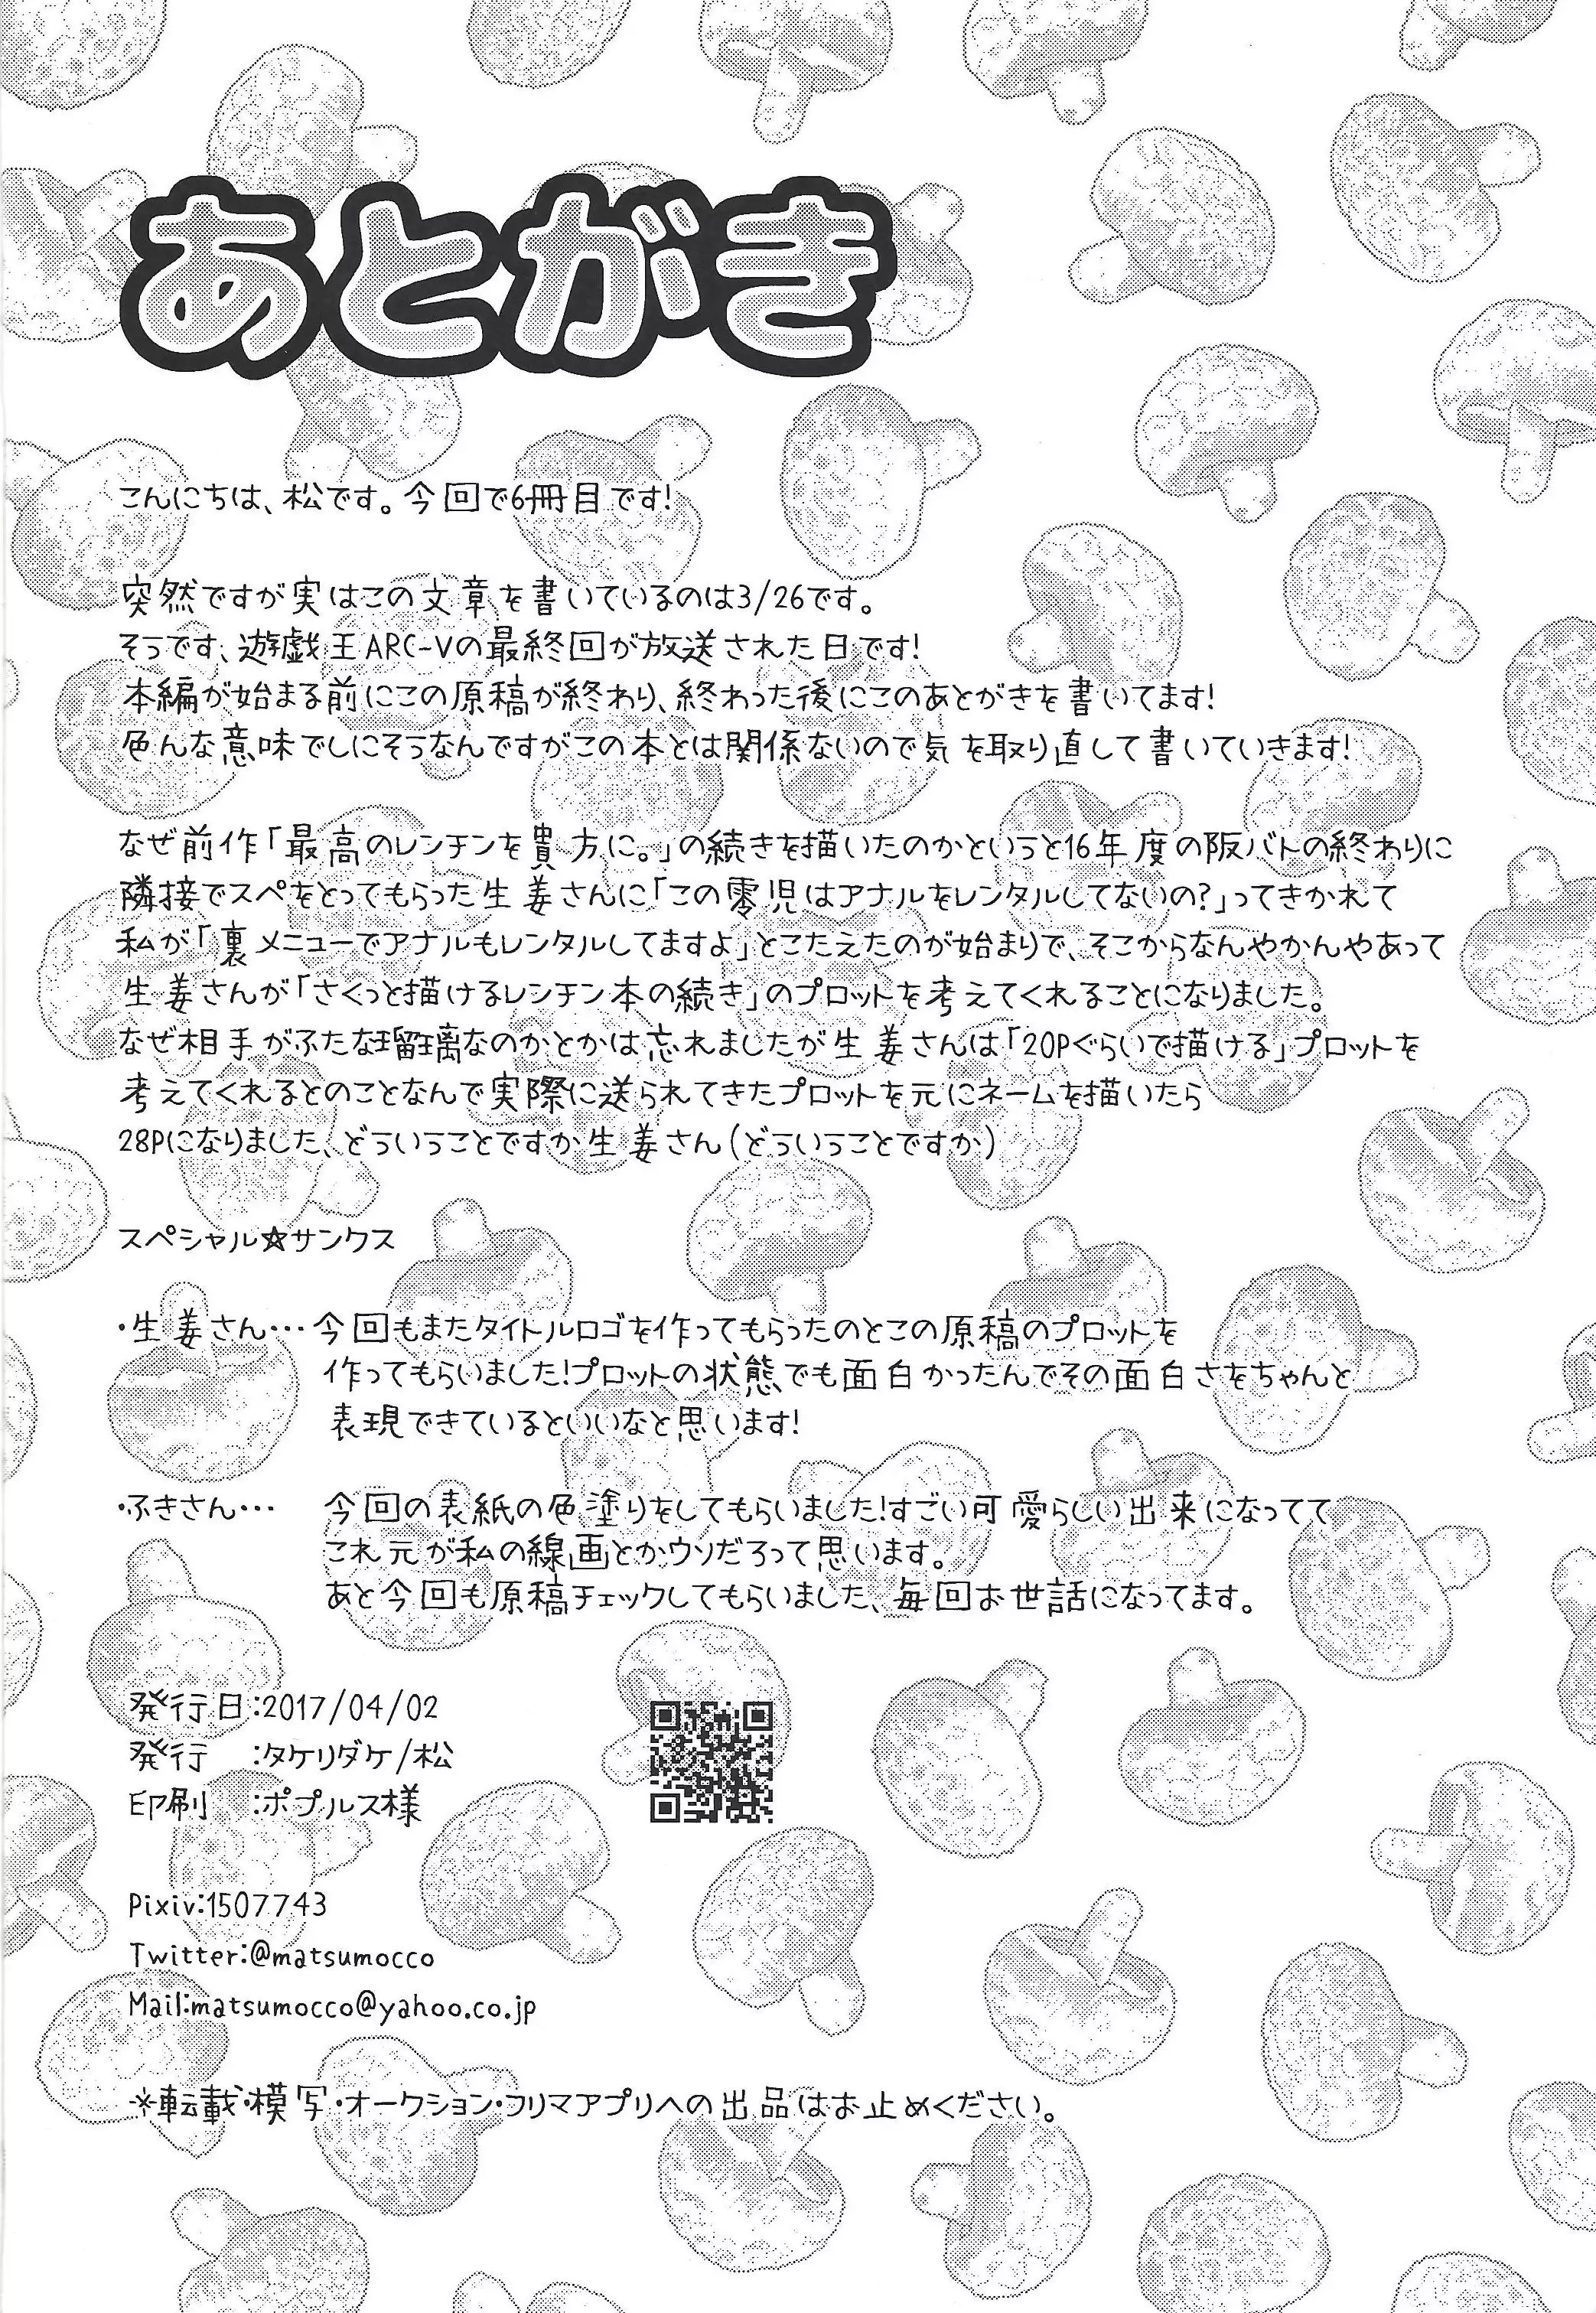 あとがき
こんにちは、松です。今回で6冊目です!
突然ですが実はこの文章を書いているのは3/26です。
そうです、遊戯王ARC-Vの最終回が放送された日です!
本編が始まる前にこの原稿が終わり、終わった後にこのあとがきを書いてます!
色んな意味でしにそうなんですがこの本とは関係ないので気を取り直して書いていきます!
なぜ前作「最高のレンチンを貴方に。」の続きを描いたのかというと16年度の阪バトの終わりに
隣接でスペをとってもらった生姜さんに「この零児はアナルをレンタルしてないの?」ってきかれて
私が「裏メニューでアナルもレンタルしてますよ」とこたえたのが始まりで、そこからなんやかんやあって
生姜さんが「さくっと描けるレンチン本の続き」のプロットを考えてくれることになりました。
なぜ相手がふたな瑠璃なのかとかは忘れましたが生姜さんは「20Pぐらいで描ける」プロットを
考えてくれるとのことなんで実際に送られてきたプロットを元にネームを描いたら
28Pになりました、どういうことですか生姜さん(どういうことですか)
スペシャル☆サンクス
・生姜さん…今回もまたタイトルロゴを作ってもらったのとこの原稿のプロットを
作ってもらいました!プロットの状態でも面白かったんでその面白さをちゃんと
表現できているといいなと思います!
・ふきさん… 今回の表紙の色塗りをしてもらいました!すごい可愛らしい出来になってて
これ元が私の線画とかウソだろって思います。
あと今回も原稿チェックしてもらいました、毎回お世話になってます。
発行日:2017/04/02
発行 :タケリダケ/松
印刷 :ポプルス様
Pixiv:1507743
Twitter:@matsumocco
Mail:matsumocco@yahoo.co.jp
※転載・模写・オークション・フリマアプリへの出品はお止めください。